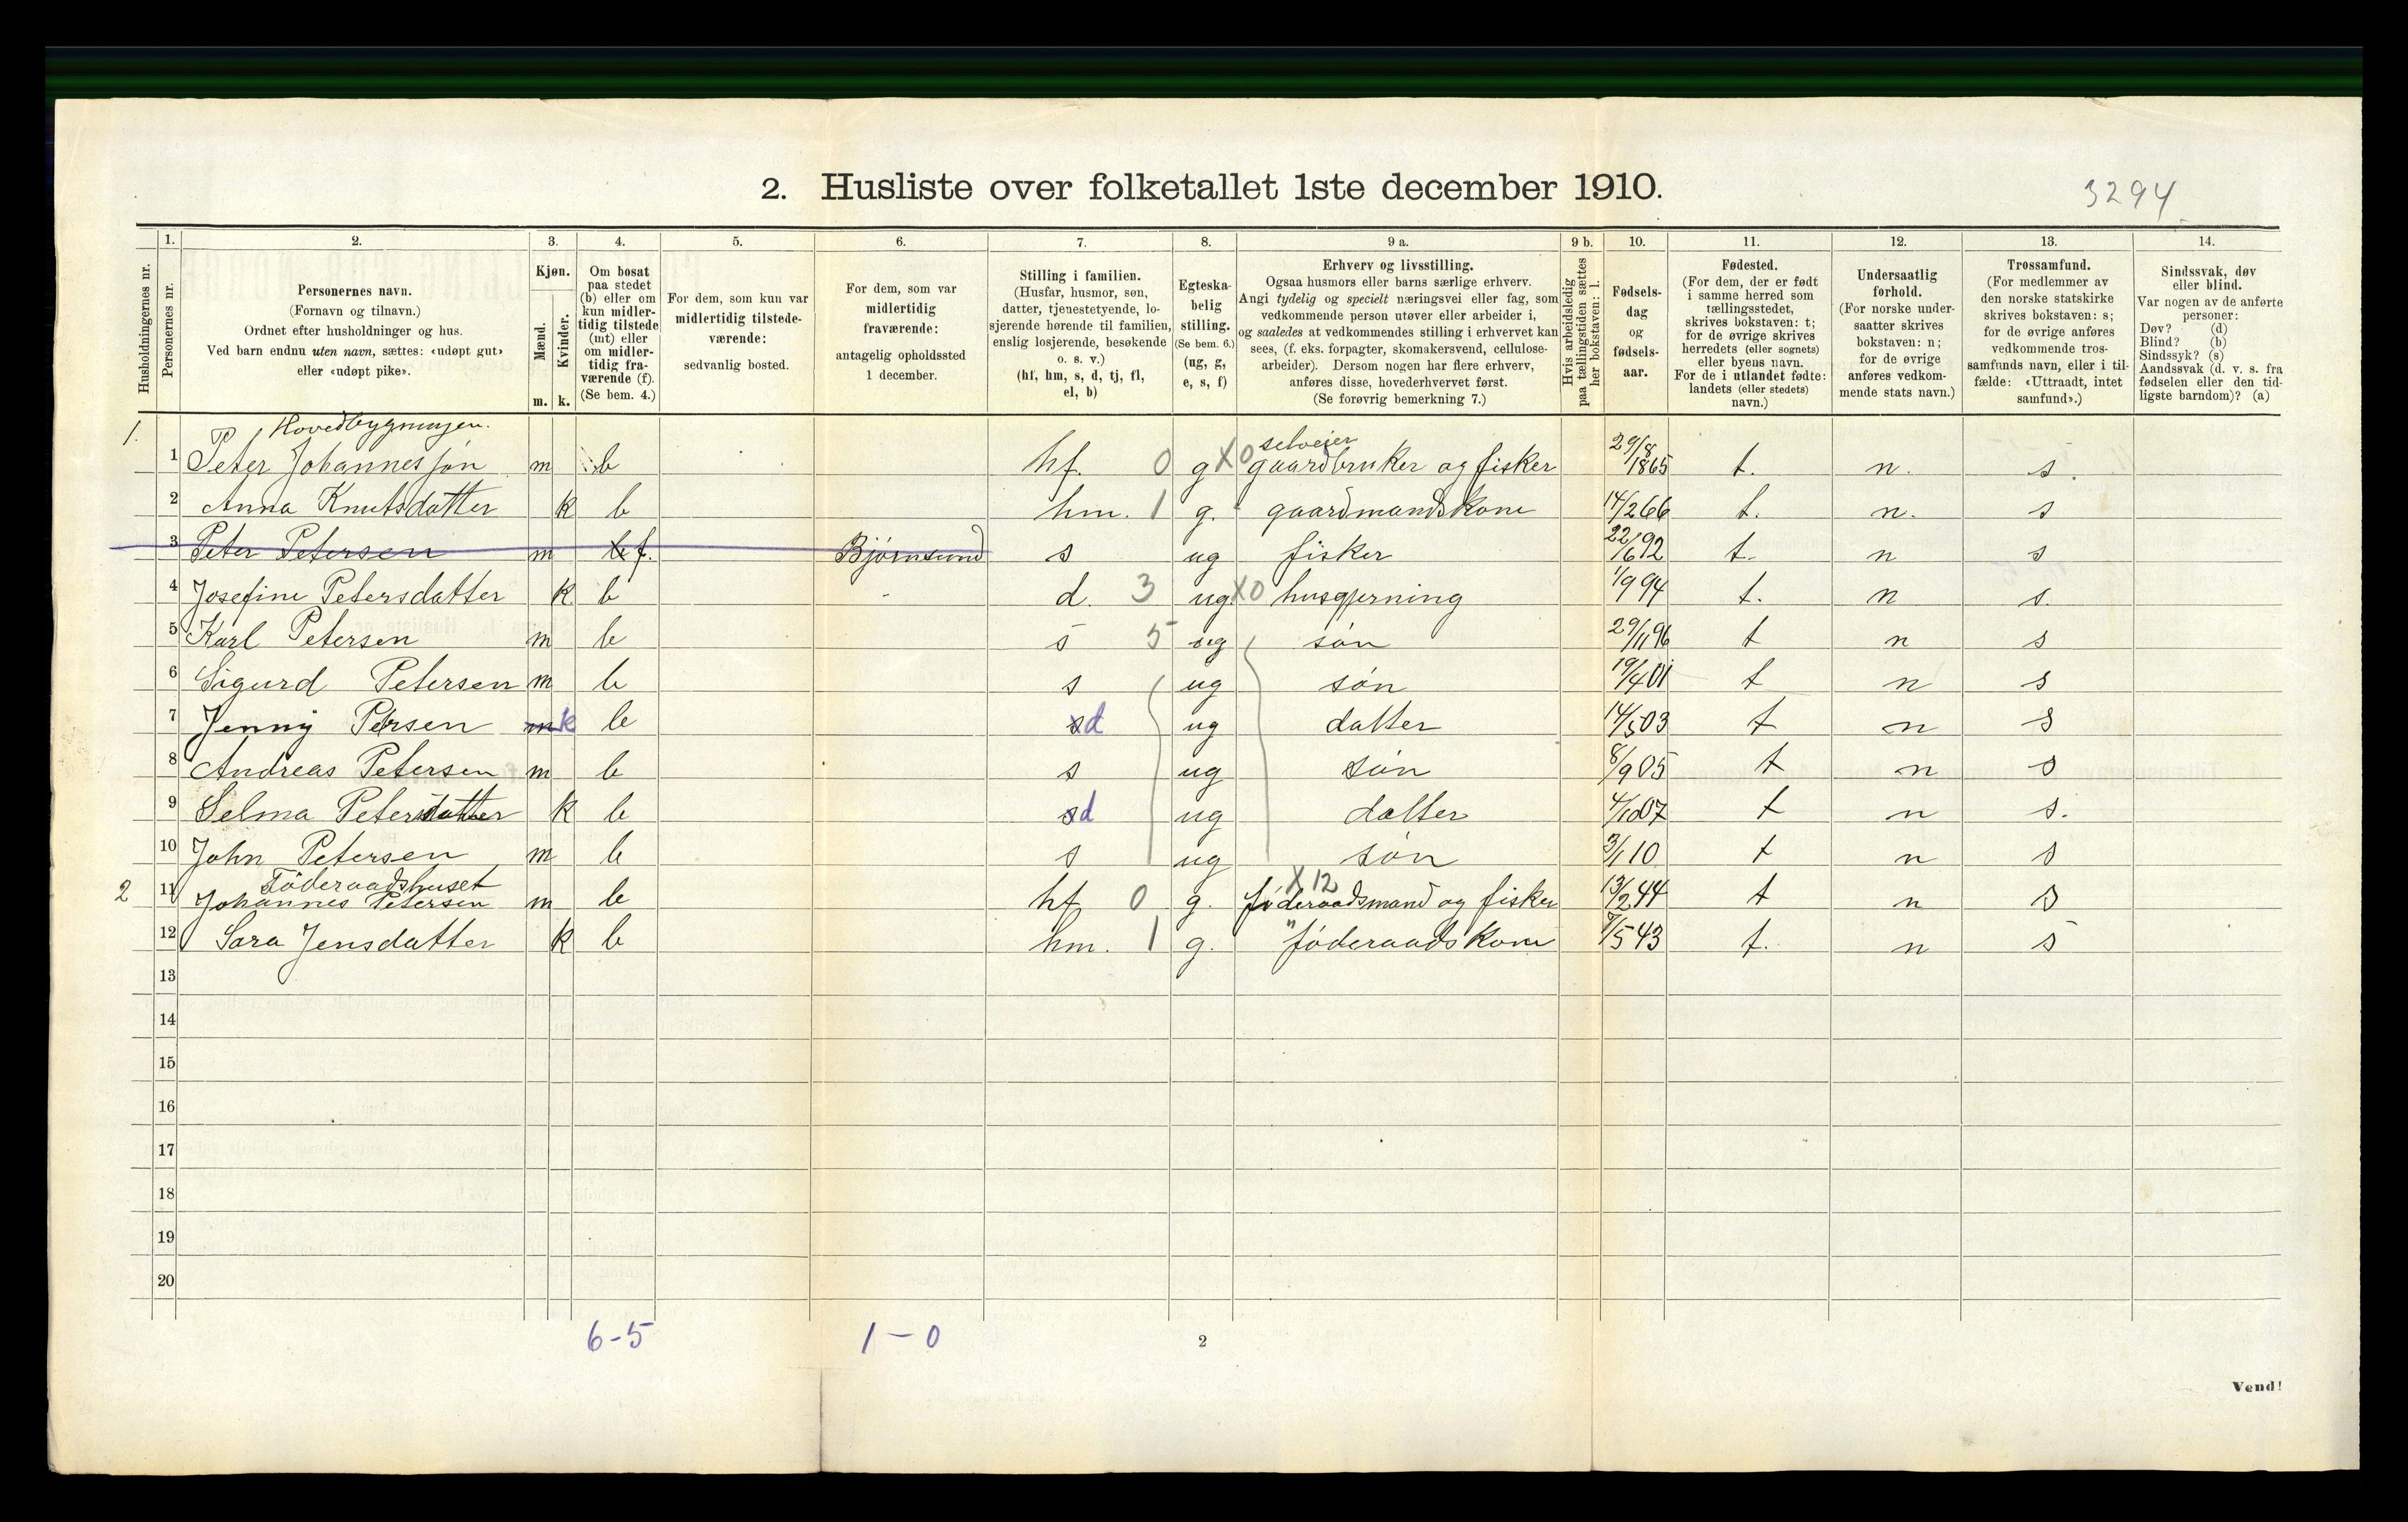 2. Husliste over folketallet 1ste december 1910.
3294
Husholdningernes nr.
1.
Personernes nr.
2.
Personernes navn.
(Fornavn og tilnavn.)
Ordnet efter husholdninger og hus.
Ved barn endnu uten navn, sættes: «udøpt gut»
eller «udøpt pike».
3.
Kjøn.
Mænd.
Kvinder.
m. k.
4.
Om bosat
paa stedet
(b) eller om
kun midler-
tidig tilstede
(mt) eller
om midler-
tidig fra-
værende (f).
(Se bem. 4.)
5.
For dem, som kun var
midlertidig tilstede-
værende:
sedvanlig bosted.
6.
For dem, som var
midlertidig
fraværende:
antagelig opholdssted
1 december.
7.
Stilling i familien.
(Husfar, husmor, søn,
datter, tjenestetyende, lo-
sjerende hørende til familien,
enslig losjerende, besøkende
o. s. v.)
(hf, hm, s, d, tj, fl,
el, b)
8.
Egteska-
belig
stilling.
(Se bem. 6.)
(ug, g,
e, s, f)
9 a.
Erhverv og livsstilling.
Ogsaa husmors eller barns særlige erhverv.
Angi tydelig og specielt næringsvei eller fag, som
vedkommende person utøver eller arbeider i,
og saaledes at vedkommendes stilling i erhvervet kan
sees, (f. eks. forpagter, skomakersvend, cellulose-
arbeider). Dersom nogen har flere erhverv,
anføres disse, hovederhvervet først.
(Se forøvrig bemerkning 7.)
9 b.
Hvis arbeidsledig
paa tællingstiden sættes
her bokstaven: l.
10.
Fødsels-
dag
og
fødsels-
aar.
11.
Fødested.
(For dem, der er født
i samme herred som
tællingsstedet,
skrives bokstaven: t;
for de øvrige skrives
herredets (eller sognets)
eller byens navn.
For de i utlandet fødte:
landets (eller stedets)
navn.)
12.
Undersaatlig
forhold.
(For norske under-
saatter skrives
bokstaven: n;
for de øvrige
anføres vedkom-
mende stats navn.)
13.
Trossamfund.
(For medlemmer av
den norske statskirke
skrives bokstaven: s;
for de øvrige anføres
vedkommende tros-
samfunds navn, eller i til-
fælde: «Uttraadt, intet
samfund».)
14.
Sindssvak, døv
eller blind.
Var nogen av de anførte
personer:
Døv? (d)
Blind? (b)
Sindssyk? (s)
Aandssvak (d. v. s. fra
fødselen eller den tid-
ligste barndom)? (a)
Hovedbygningen.
1. 1 Peter Johannesson m b hf. 0 g X0 selveier gaardbruker og fisker 29/8 1865 t. n. s
2 Anna Knutsdatter k b hm. 1 g. gaardmandskone 14/2 66 t. n. s
3 Peter Petersen m b f. Bjørnsund s ug fisker 22/6 92 t. n s
4 Josefine Petersdatter k. b d. 3 ug X0 husgjerning 1/9 94 t. n s.
5 Karl Petersen m b s 5 ug søn 29/11 96 t n s
6 Sigurd Petersen m b s ug søn 19/4 01 t n s
7 Jenny Petersen m k b s d ug datter 14/5 03 t n s
8 Andreas Petersen m b s ug søn 8/9 05 t n s
9 Selma Petersdatter k b s d ug datter 4/10 07 t n s.
10 John Petersen m b s ug søn 3/1 10 t n s
Føderaadshuset
2 11 Johannes Petersen m b hf 0 g. X 12 føderaadsmand og fisker 13/2 44 t n s
12 Sara Jensdatter k b hm. 1 g. " føderaadskone 7/5 43 t. n s
13
14
15
16
17
18
19
20
6-5 1-0
2
Vend!